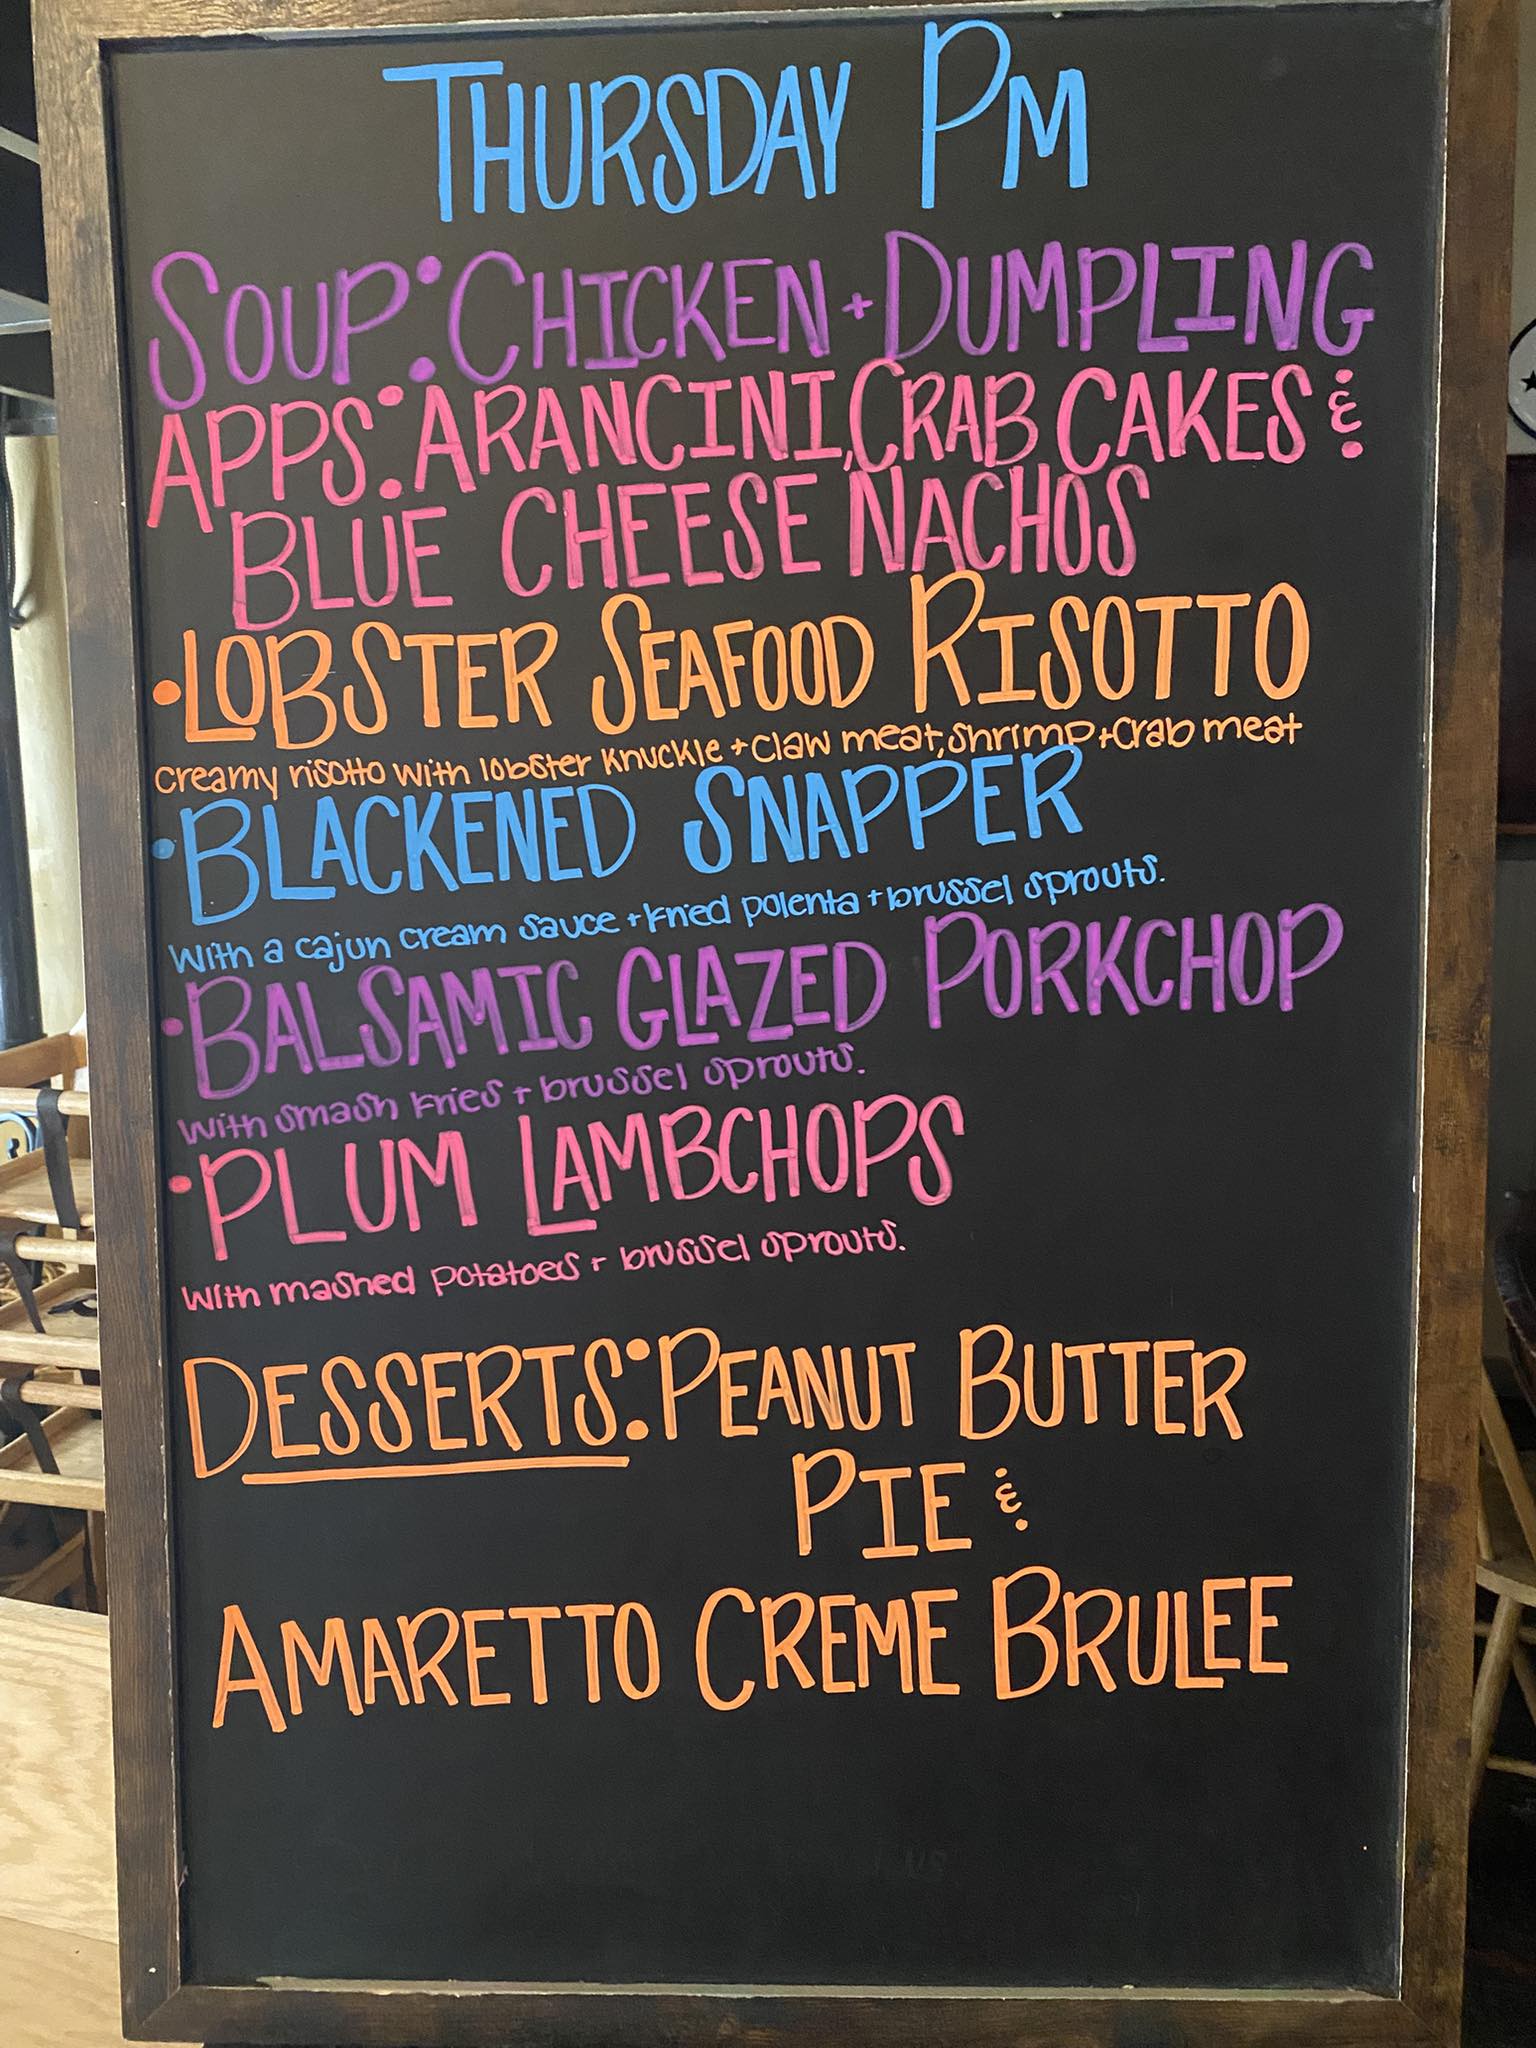 THURSDAY PM
SOUP: CHICKEN + DUMPLING
APPS: ARANCINI, CRAB CAKES &
BLUE CHEESE NACHOS
• LOBSTER SEAFOOD RISOTTO
creamy risotto with lobster knuckle + claw meat, shrimp + crab meat
• BLACKENED SNAPPER
with a cajun cream sauce + fried polenta + brussel sprouts.
• BALSAMIC GLAZED PORKCHOP
with smash fries + brussel sprouts.
• PLUM LAMBCHOPS
with mashed potatoes + brussel sprouts.
DESSERTS: PEANUT BUTTER
PIE &
AMARETTO CREME BRULEE